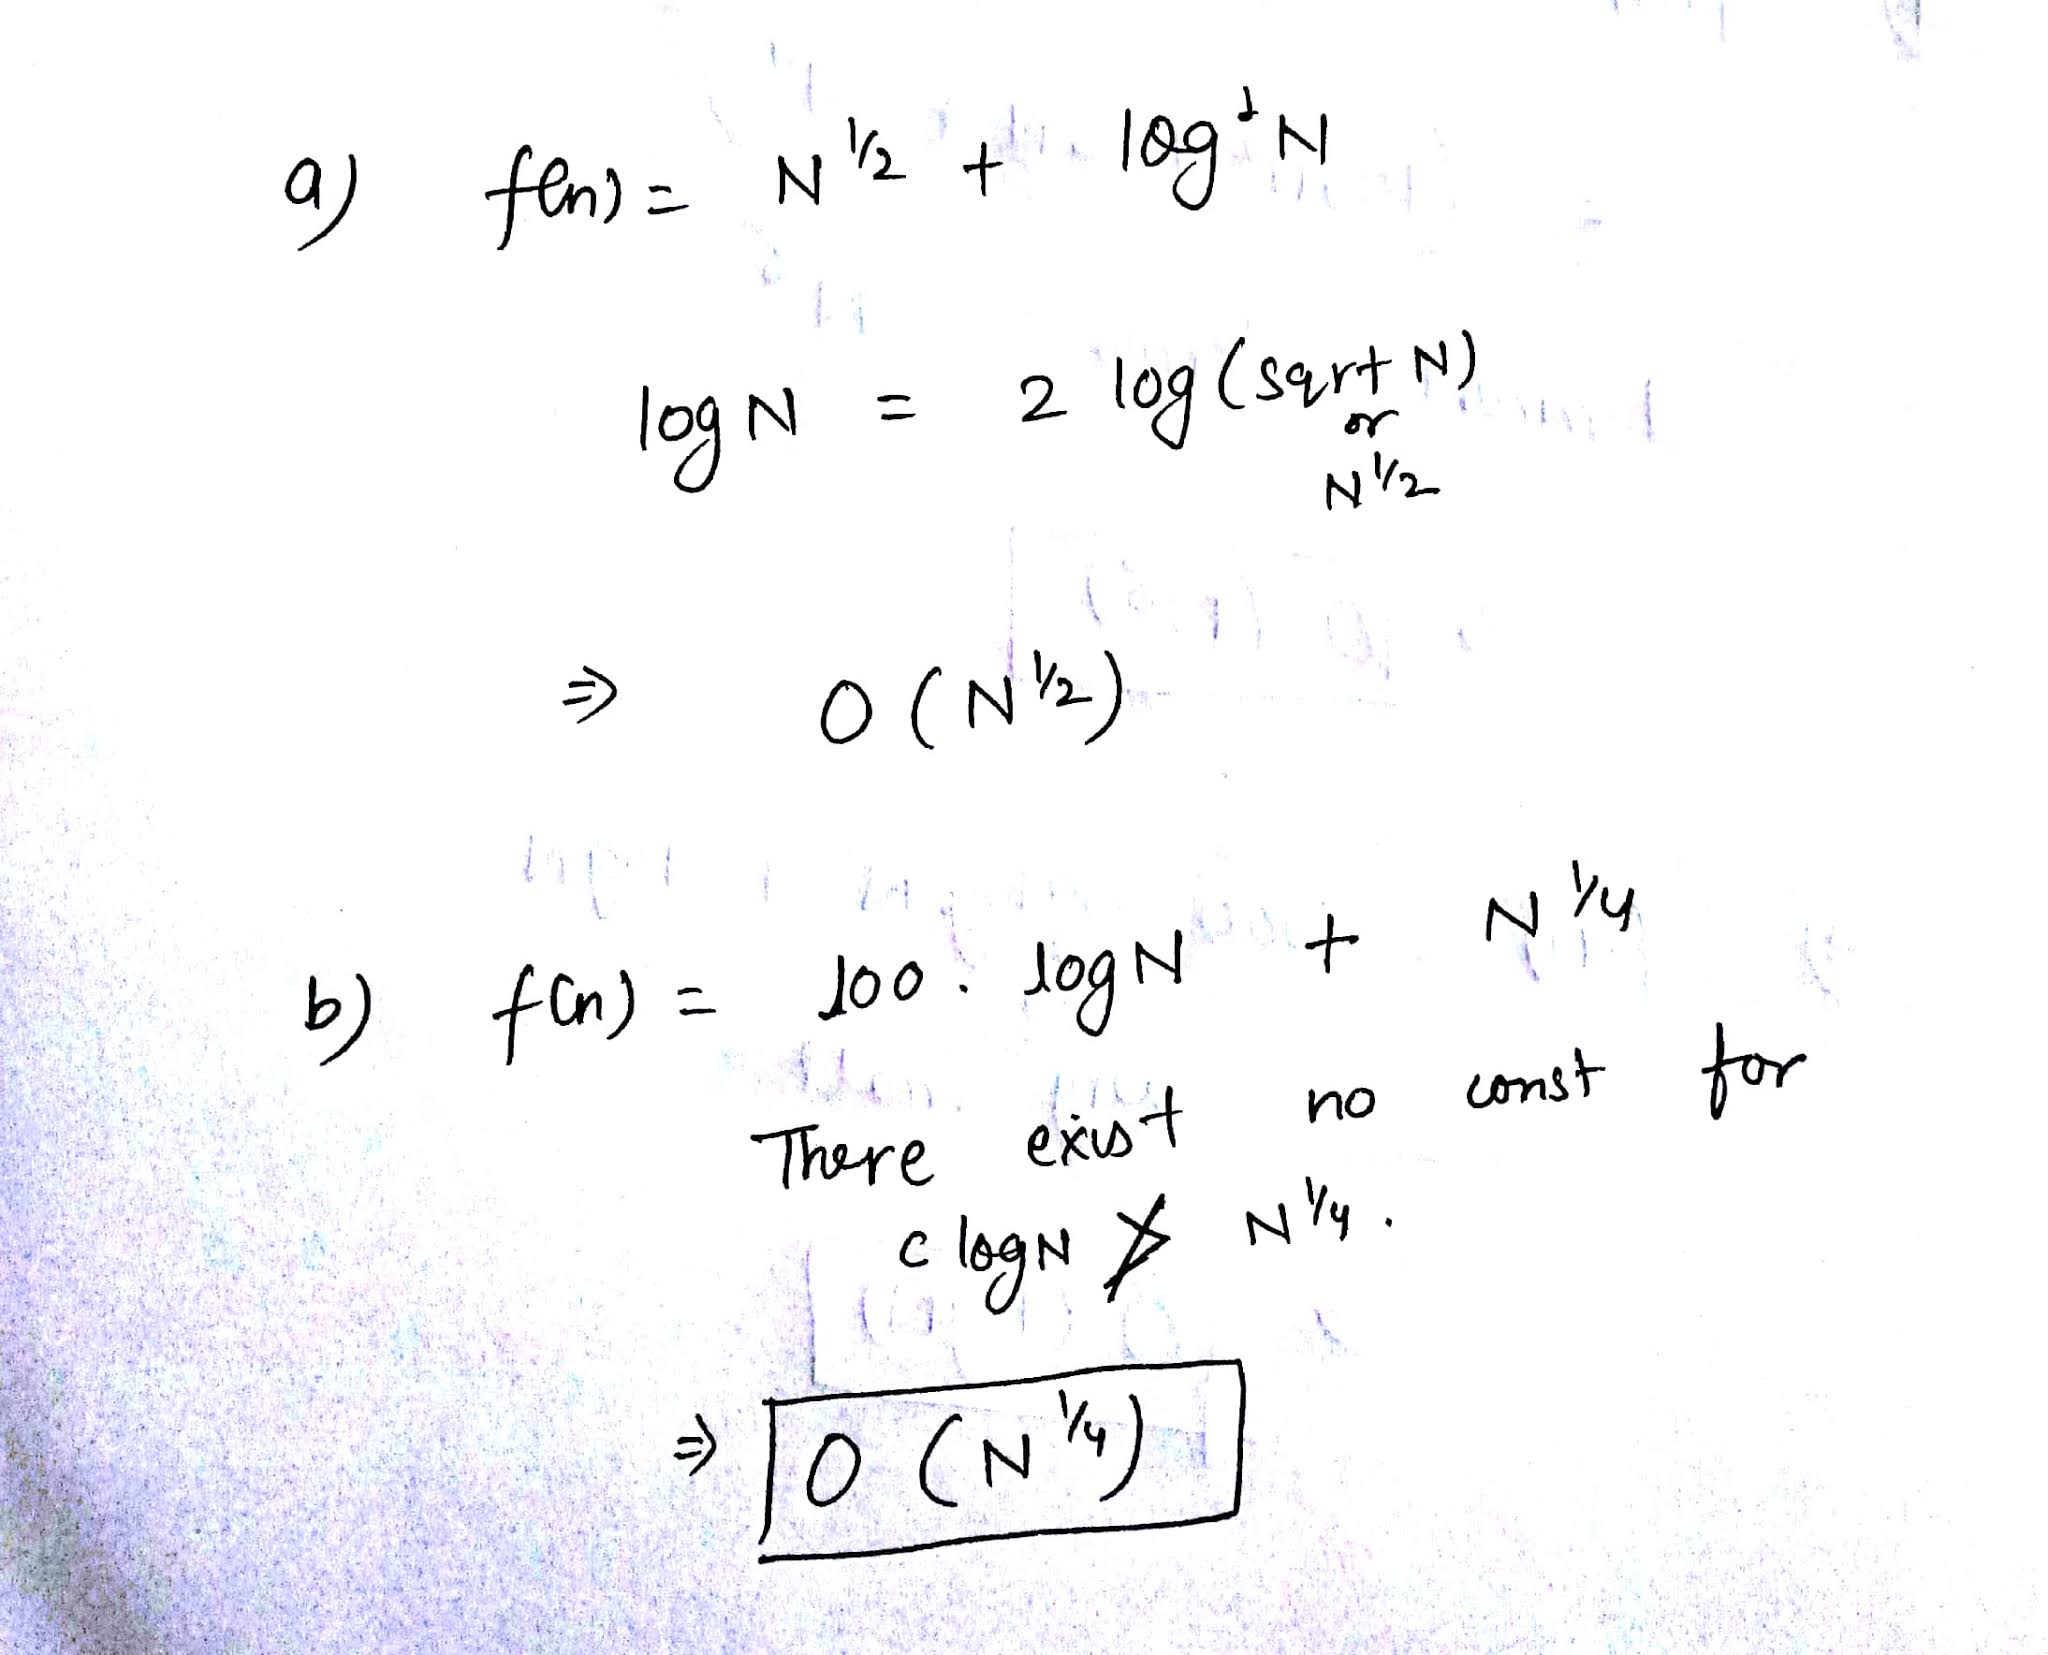 a) f(n) = N^1/2 + log^1 N
log N = 2 log (sqrt N)
or
N^1/2
⇒ O (N^1/2)
b) f(n) = 100 . log N + N^1/4
There exist no const for
c log N ≯ N^1/4 .
⇒ O (N^1/4)